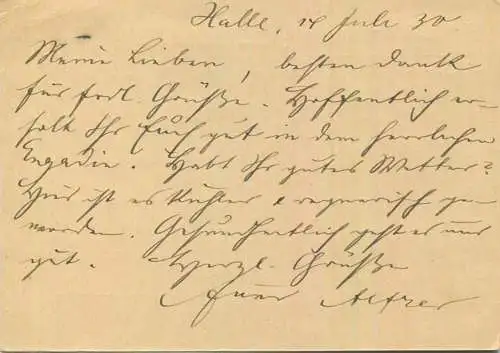 Halle, 14 Juli 30
Meine Lieben, besten Dank
für frdl. Grüße. Hoffentlich er-
holt Ihr Euch gut in dem herrlichen
Engadin. Habt Ihr gutes Wetter?
Hier ist es kühler & regnerisch ge-
worden. Gesundheitlich geht es uns
gut. Herzl. Grüße
Euer Alfred